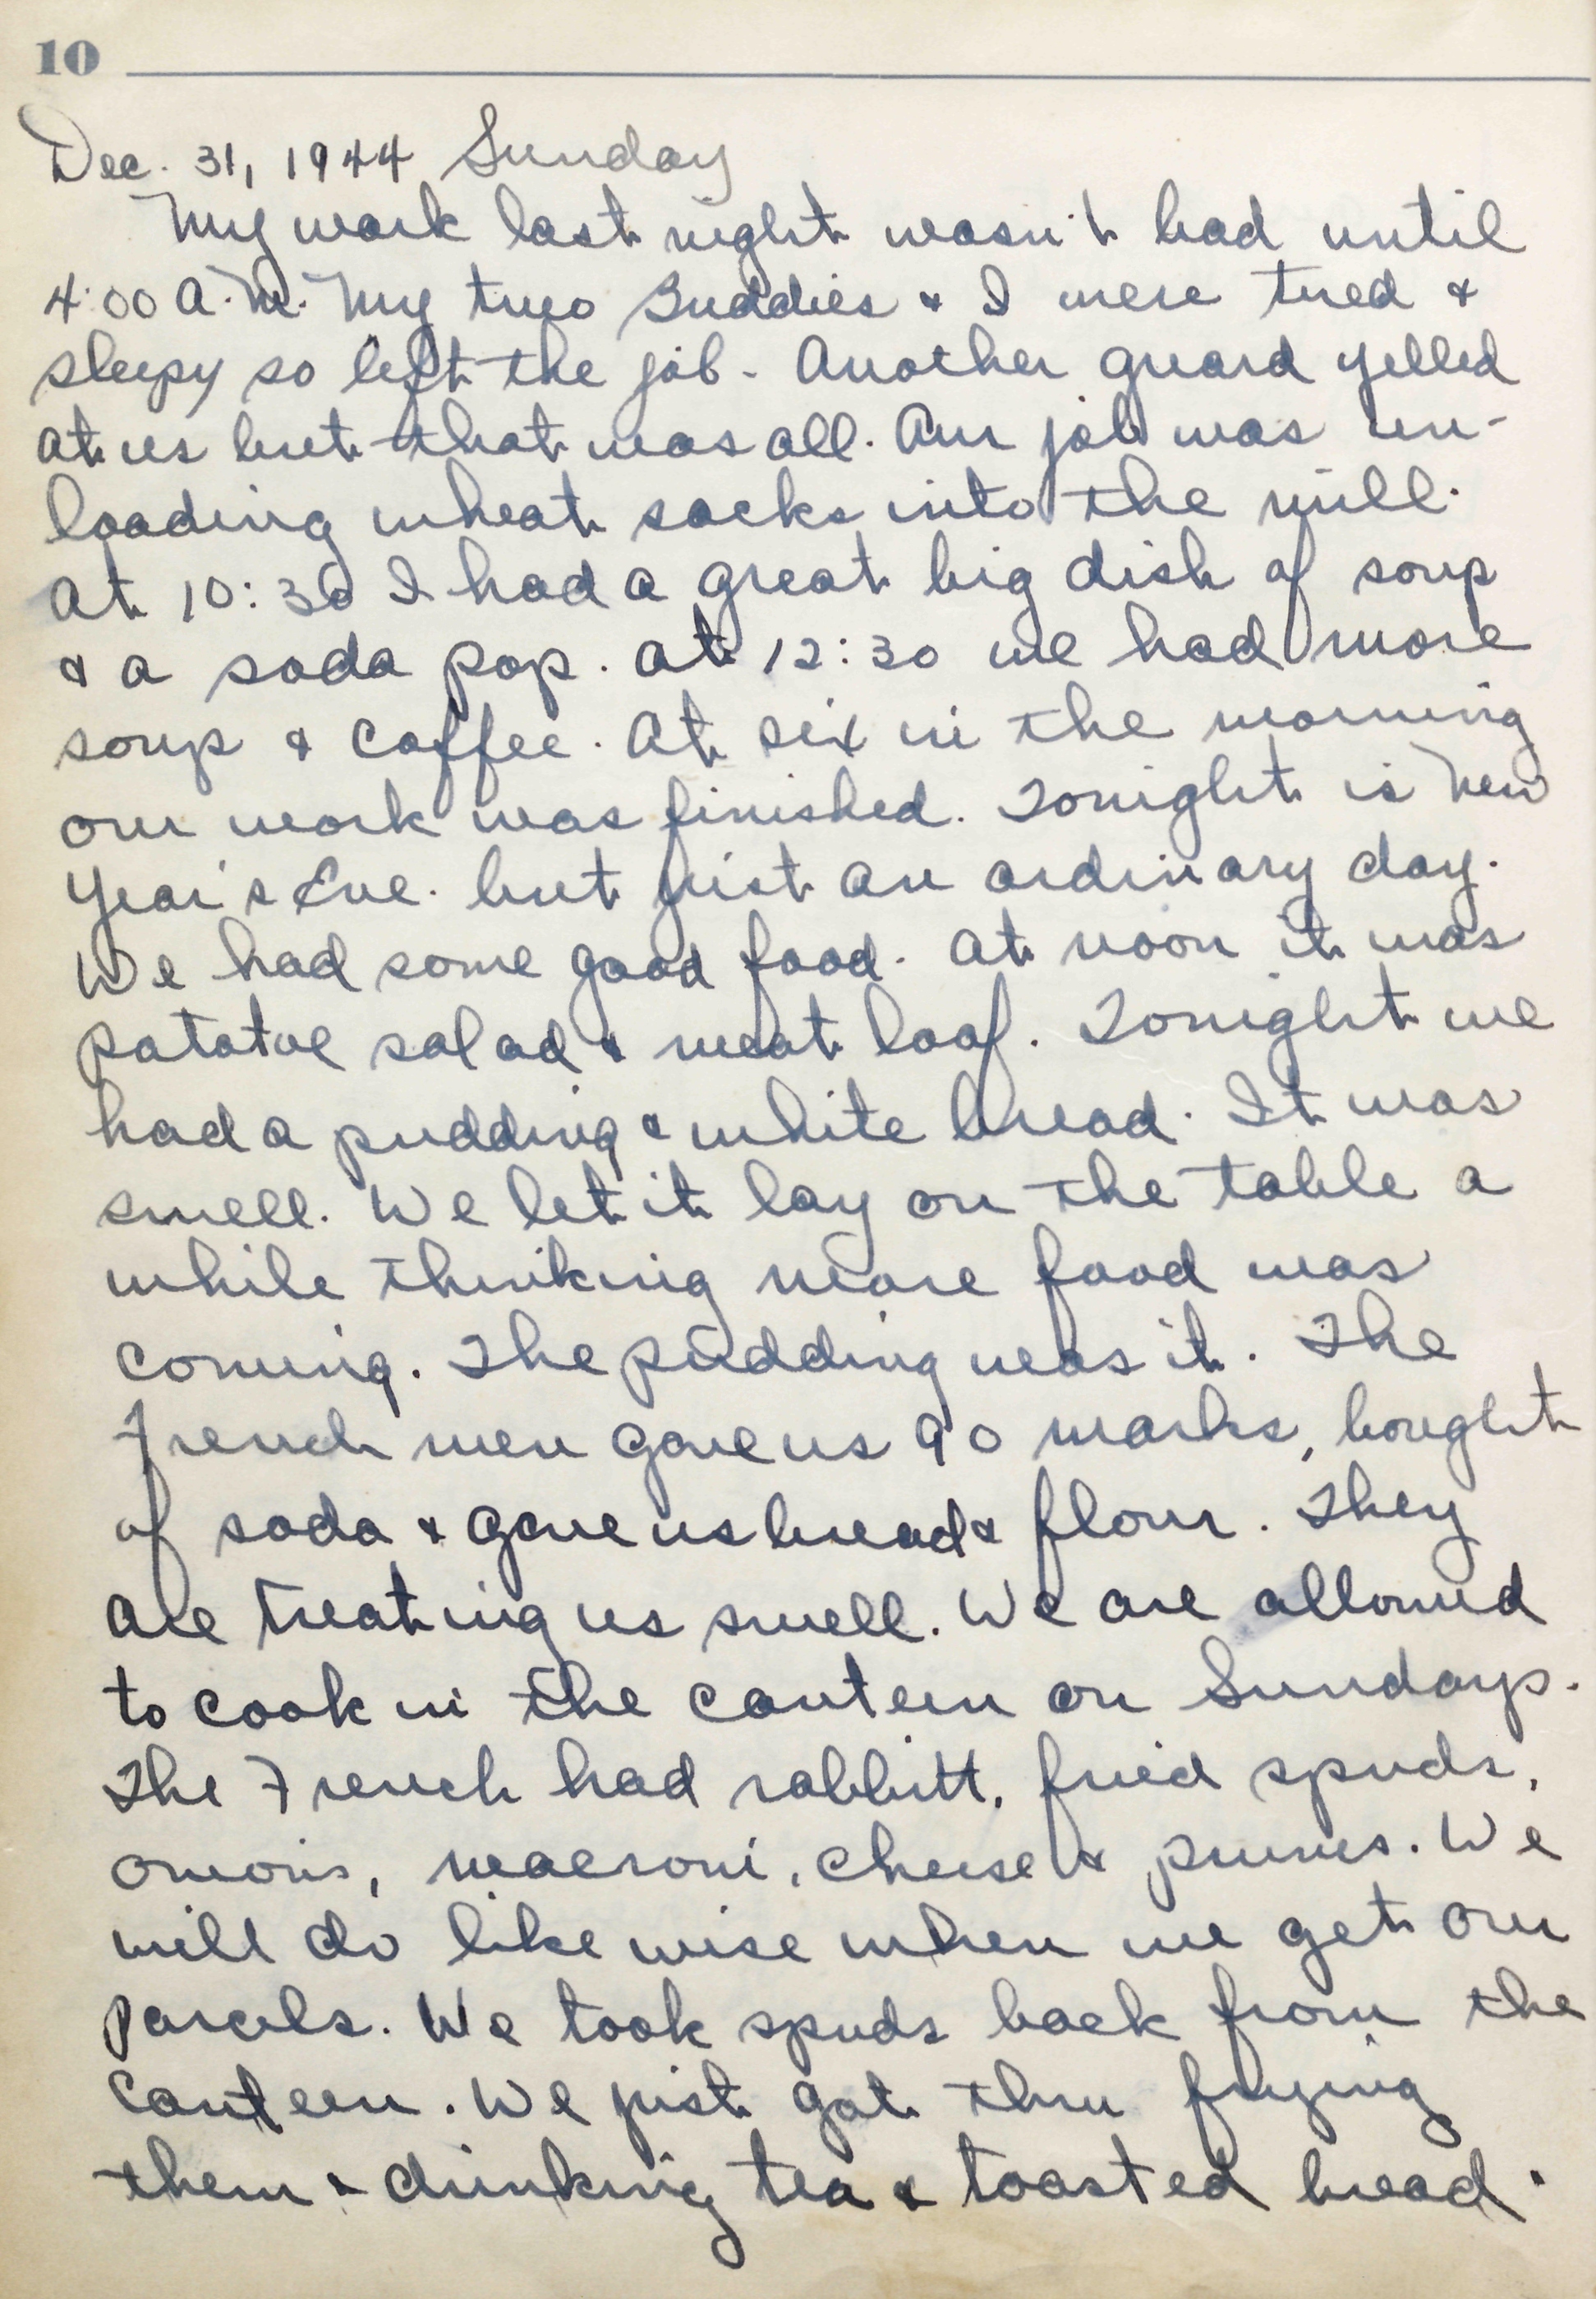 10
Dec. 31, 1944 Sunday
My work last night wasn't bad until
4:00 A.M. My two Buddies & I were tired &
sleepy so left the job. Another guard yelled
at us but that was all. Our job was un-
loading wheat sacks into the mill.
At 10:30 I had a great big dish of soup
& a soda pop. At 12:30 we had more
soup & coffee. At six in the morning
our work was finished. Tonight is New
Year's Eve. but just an ordinary day.
We had some good food. At noon it was
potatoe salad & meat loaf. Tonight we
had a pudding & white bread. It was
swell. We let it lay on the table a
while thinking more food was
coming. The pudding was it. The
French men gave us 90 marks, bought
of soda & gave us bread & flour. They
are treating us swell. We are allowed
to cook in the canteen on Sundays.
The French had rabbitt, fried spuds,
onions, macroni, cheese & prunes. We
will do like wise when we get our
parcels. We took spuds back from the
canteen. We just got thru frying
them & drinking tea & toasted bread.